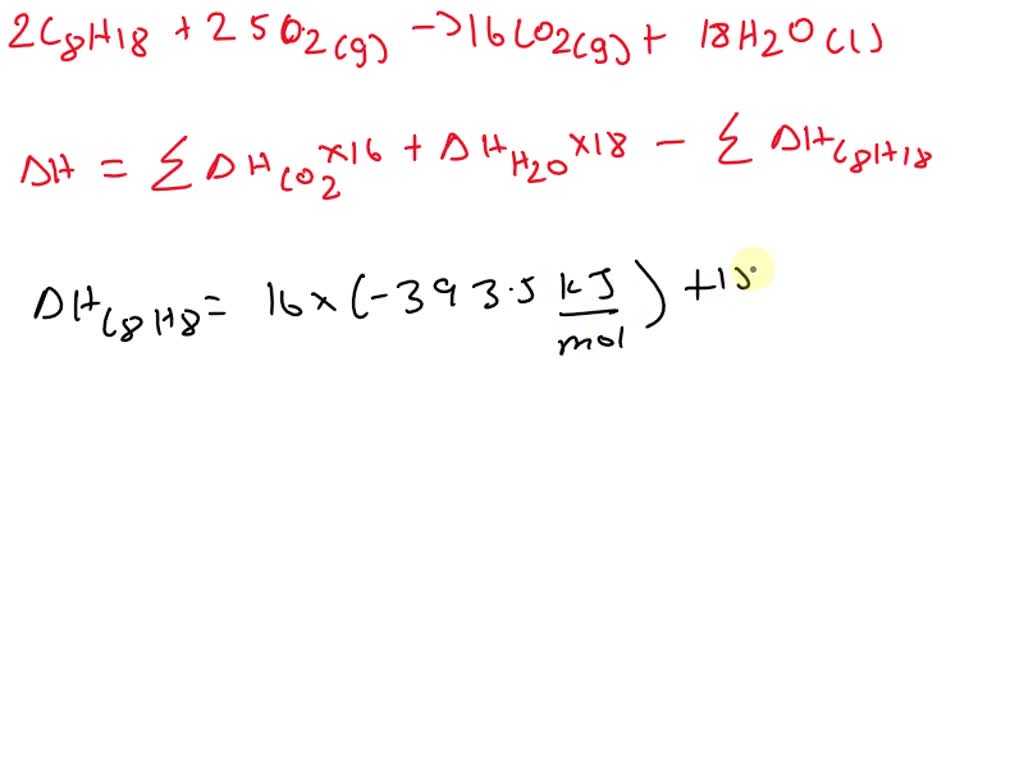 2C8H18 + 25O2(g) -> 16CO2(g) + 18H2O(l)
ΔH = Σ ΔH CO2 ×16 + ΔH H2O ×18 - Σ ΔH C8H18
ΔH C8H8 = 16 × (-393.5 kJ/mol) + 1